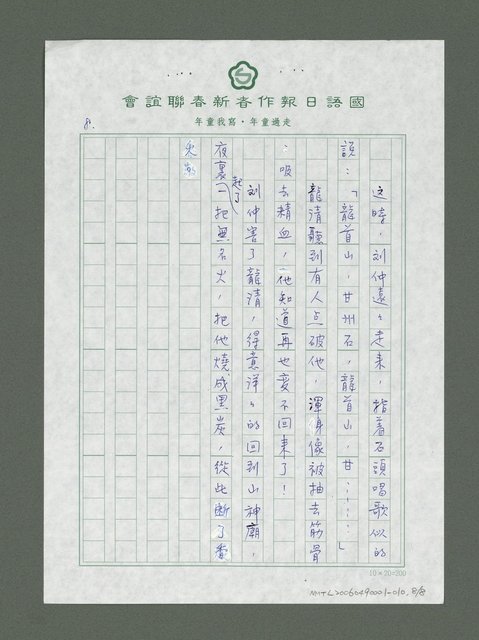 國語日報作者新春聯誼會
走過童年·寫我童年
8.
這時，刘仲遠々走来，指着石頭唱歌似的
說：「龍首山，甘州石，龍首山，甘……」
龍清聽到有人点破他，渾身像被抽去筋骨
：吸去精血，他知道再也变不回来了！
刘仲害了龍清，得意洋々的回到山神廟，
夜裏起了一把無名火，把他燒成黑炭，從此断了香
火
10×20=200
NMTL20060490001-010, 8/8